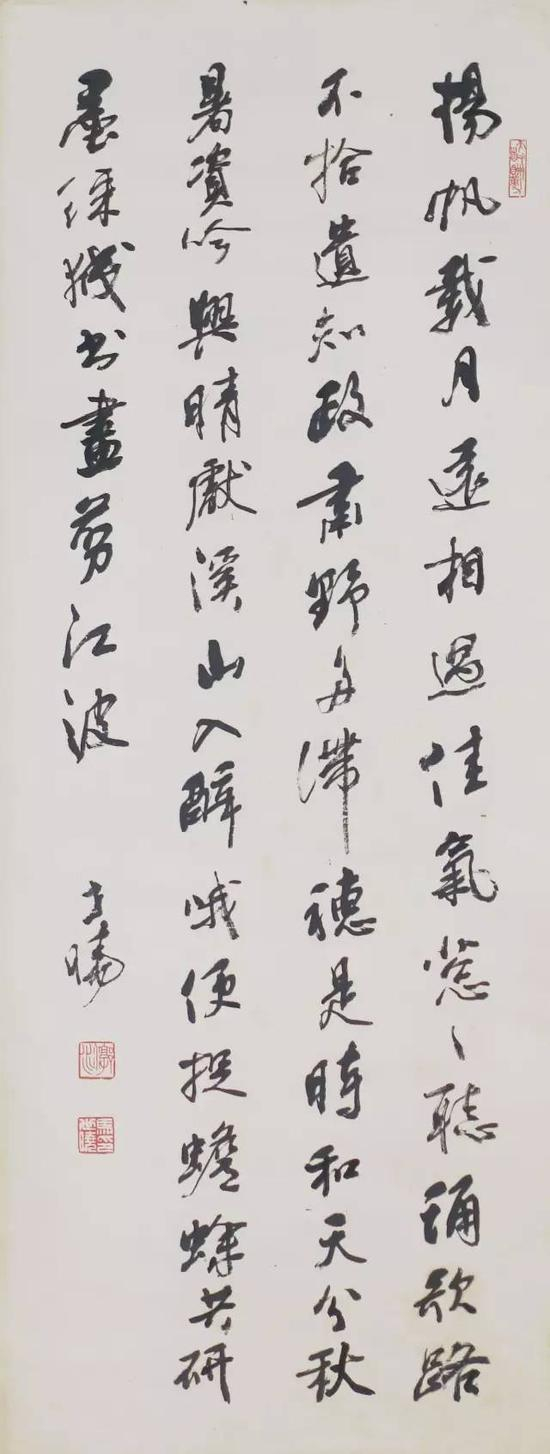 揚帆載月遠相過佳氣葱〻聽誦歌路
不拾遺知政肅野多滯穗是時和天分秋
暑資吟興晴獻溪山入醉哦便捉蟾蜍共研
墨綵牋書盡剪江波
世曉